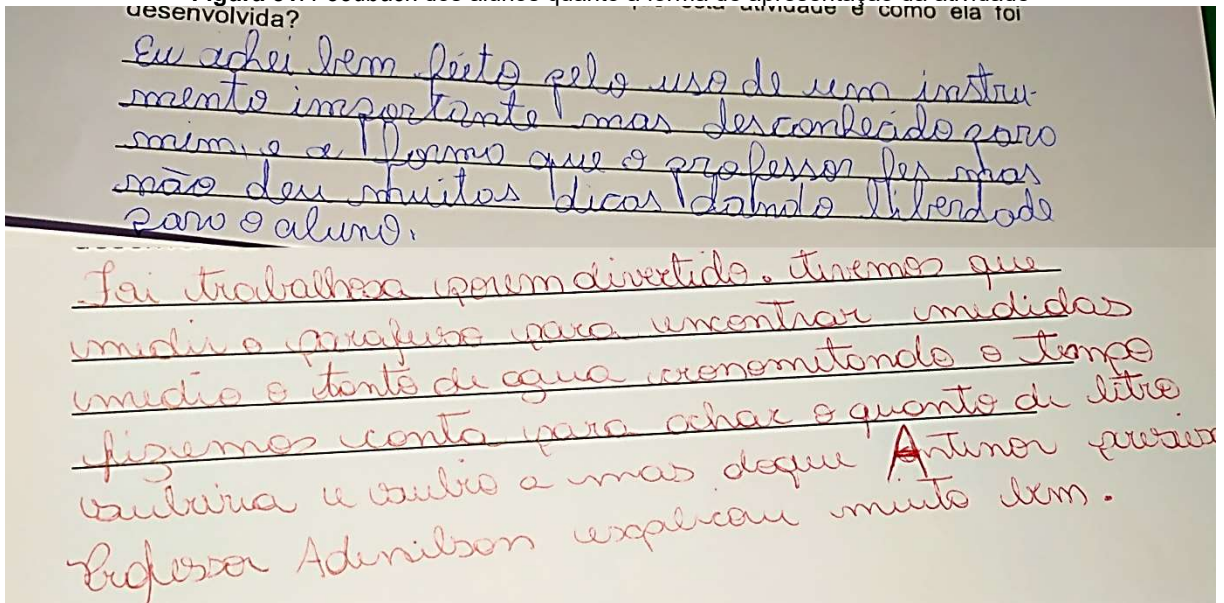 desenvolvida?
atividade e como ela foi
Eu achei bem feito pelo uso de um instru-
mento importante mas desconhecido para
mim, e a forma que o professor fes mas
não deu muitas dicas dando liberdade
para o aluno.
Foi trabalhosa porem divertido. tivemos que
medir o parafuso para encontrar medidas
medio o tanto de agua cronomitando o tempo
fizemos conta para achar o quanto de litro
caubiria e caubio a mas doque Antinor precisa
Professor Adenilson explicou muito bem.